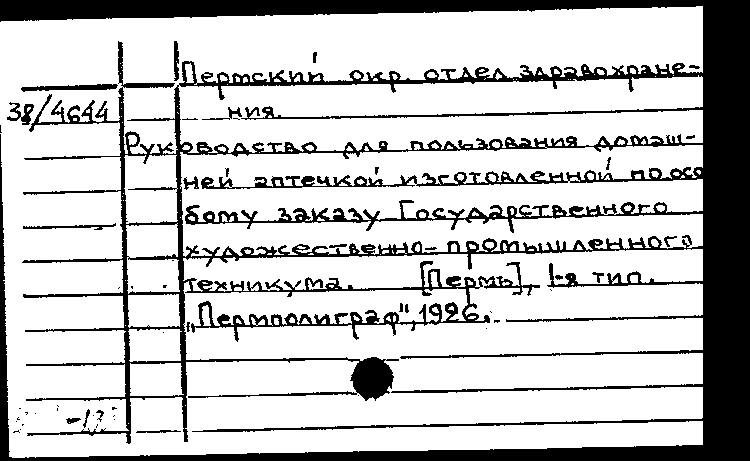 Пермский окр. отдел здравохране-
38/4644 ния.
Руководство для пользования домаш-
ней аптечкой изготовленной по осо
бому заказу Государственного
художественно-промышленного
техникума. [Пермь], 1-я тип.
„Пермполиграф", 1926.